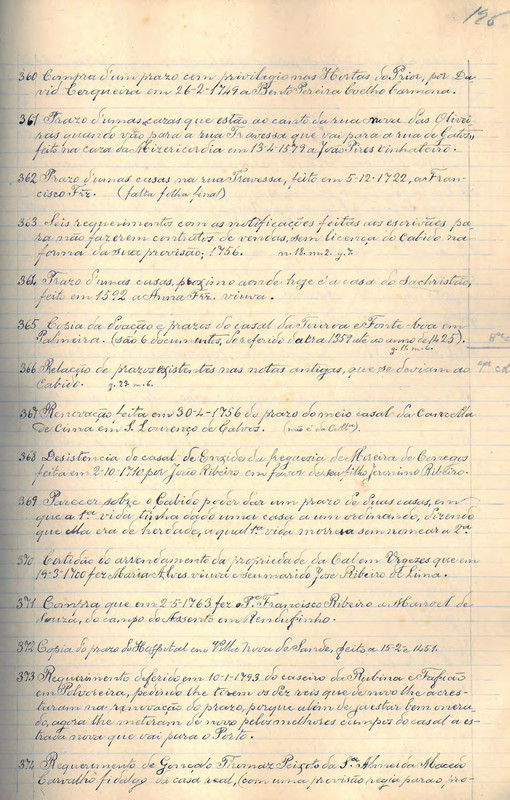 196
360 Compra d'um prazo com privilegio nas Hortas do Prior, por Da
vid Cerqueira em 26-2-1749 a Bento Pereira Coelho Carmona.
361 Prazo d'umas cazas que estão ao canto da rua nova das Olivei
ras quando vão para a rua Travessa que vai para a rua de Gatos,
feito na caza da Misericordia em 13-4-1579 a João Pires vinhateiro.
362 Prazo d'umas casas na rua Travessa, feito em 5-12-1722, a Fran-
cisco Frz. (falta folha final)
363 Seis requerimentos com as notificações feitas aos escrivães pa
ra não fazerem contratos de vendas, sem licença do Cabido na
forma da sua provisão; 1756. n. 18. m. 2. g. 7.
364 Prazo d'umas casas, proximo aonde hoje é a casa do sachristão,
feito em 1592 a Anna Frz. viuva.
365 Copia da Doação e prazos do casal da Torroa e Fonte boa em
Palmeira. (são 6 documentos, de referido da era 1359 até ao anno de 1425).
g. 15. m. 6.
366 Relação de prazos existentes nas notas antigas, que se deviam ao
Cabido. g. 27. m. 6.
367 Renovação feita em 30-4-1756 do prazo do meio casal da Cancella
de cima em S. Lourenço de Calvos.
368 Desistencia do casal de Enxido da freguesia de Moreira de Conegos
feita em 2-10-1710 por João Ribeiro em favor de seu filho Jeronimo Ribeiro.
369 Parecer sobre o Cabido poder dar um prazo de duas casas, em
que a 1ª vida tinha dado uma casa a um ordinando, dizendo
que ella era de herdade, a qual 1ª vida morreu sem nomear a 2ª
370 Certidão do arrendamento da propriedade da Cal em Urgezes que em
19-3-1700 fez Maria Alves viuva e seu marido Jose Ribeiro de Lima.
371 Compra que em 2-5-1763 fez o Pe Francisco Ribeiro a Manoel de
Souza, do campo do Assento em Rendufinho.
372 Copia do prazo do Hospital em Villa Nova de Sande, feito a 15-2-1451.
373 Requerimento deferido em 10-1-1793 do caseiro da Rubina e Tafião
em Polvoreira, pedindo lhe tirem os dez reis que de novo lhe acres-
taram na renovação do prazo, porque além de ja estar bem onera
do, agora lhe metiram de novo pelos melhores campos do casal a es-
trada nova que vai para o Porto.
374 Requerimento de Gonçalo Thomaz Peixoto da Sª Almeida Macedo
Carvalho fidalgo da casa real, (com uma provisão regia para o pro-